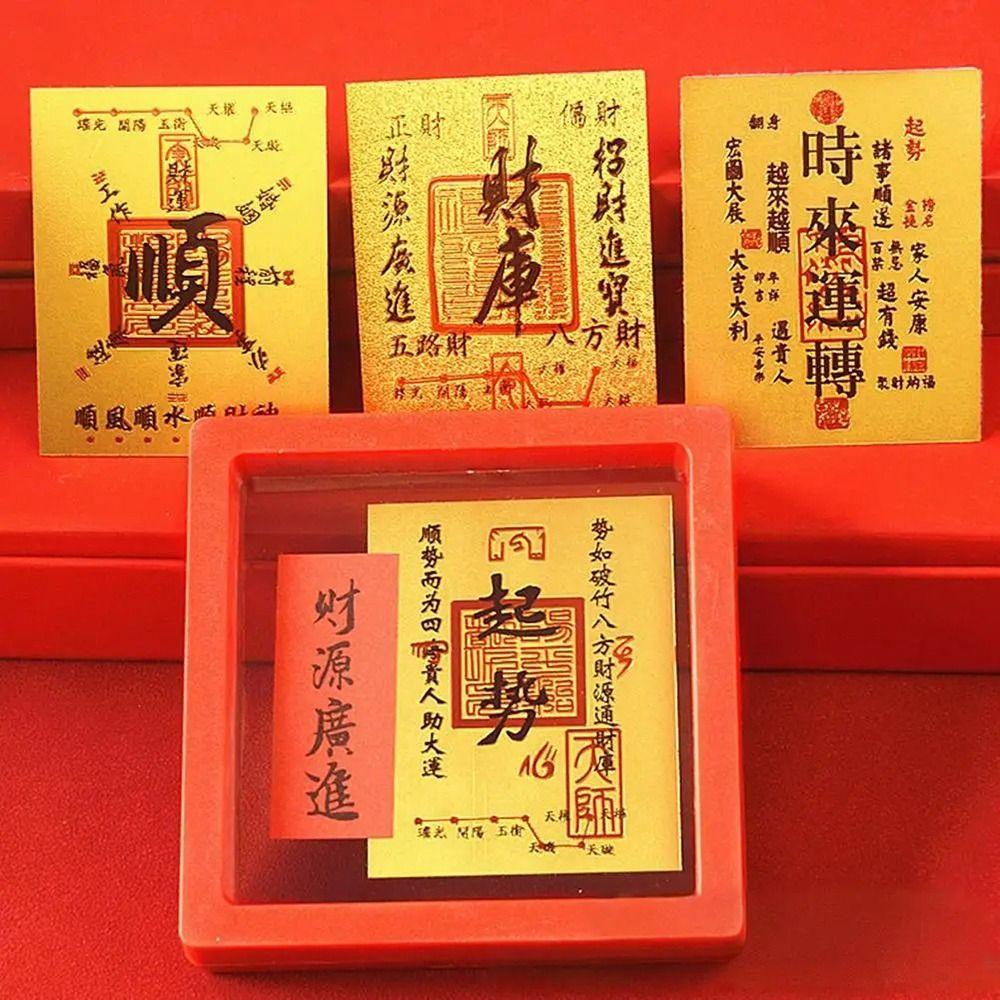 天權
天樞
瑤光 開陽 玉衡
天璇
財運
工作
婚姻
順
順風順水順財神
正財
天師
偏財
財源廣進
財庫
招財進寶
五路財
八方財
天權
開陽
起勢
翻身
時來運轉
諸事順遂
宏圖大展
越來越順
金榜
家人安康
百無禁忌
超有錢
大吉大利
遇貴人
平安喜樂
聚財納福
勢如破竹八方財源通財庫
起勢
順勢而为四時貴人助大運
天師
天權
瑤光 開陽 玉衡
天璣
天璇
财源廣進